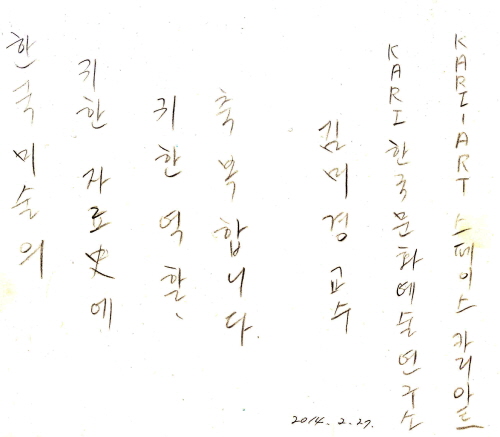 한국미술의
귀한 자료史에
귀한 역할,
축복합니다.
김미경 교수
KARI 한국문화예술연구소
KARI-ART 스페이스 카리아트
2014. 2. 27.